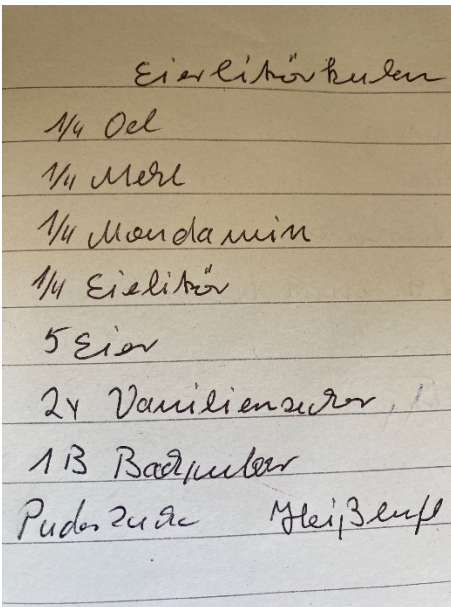 Eierlikörkuchen
1/4 Oel
1/4 Mehl
1/4 Mondamin
1/4 Eielikör
5 Eier
2x Vanilienzucker
1 B Backpulver
Puderzucker Heißluft